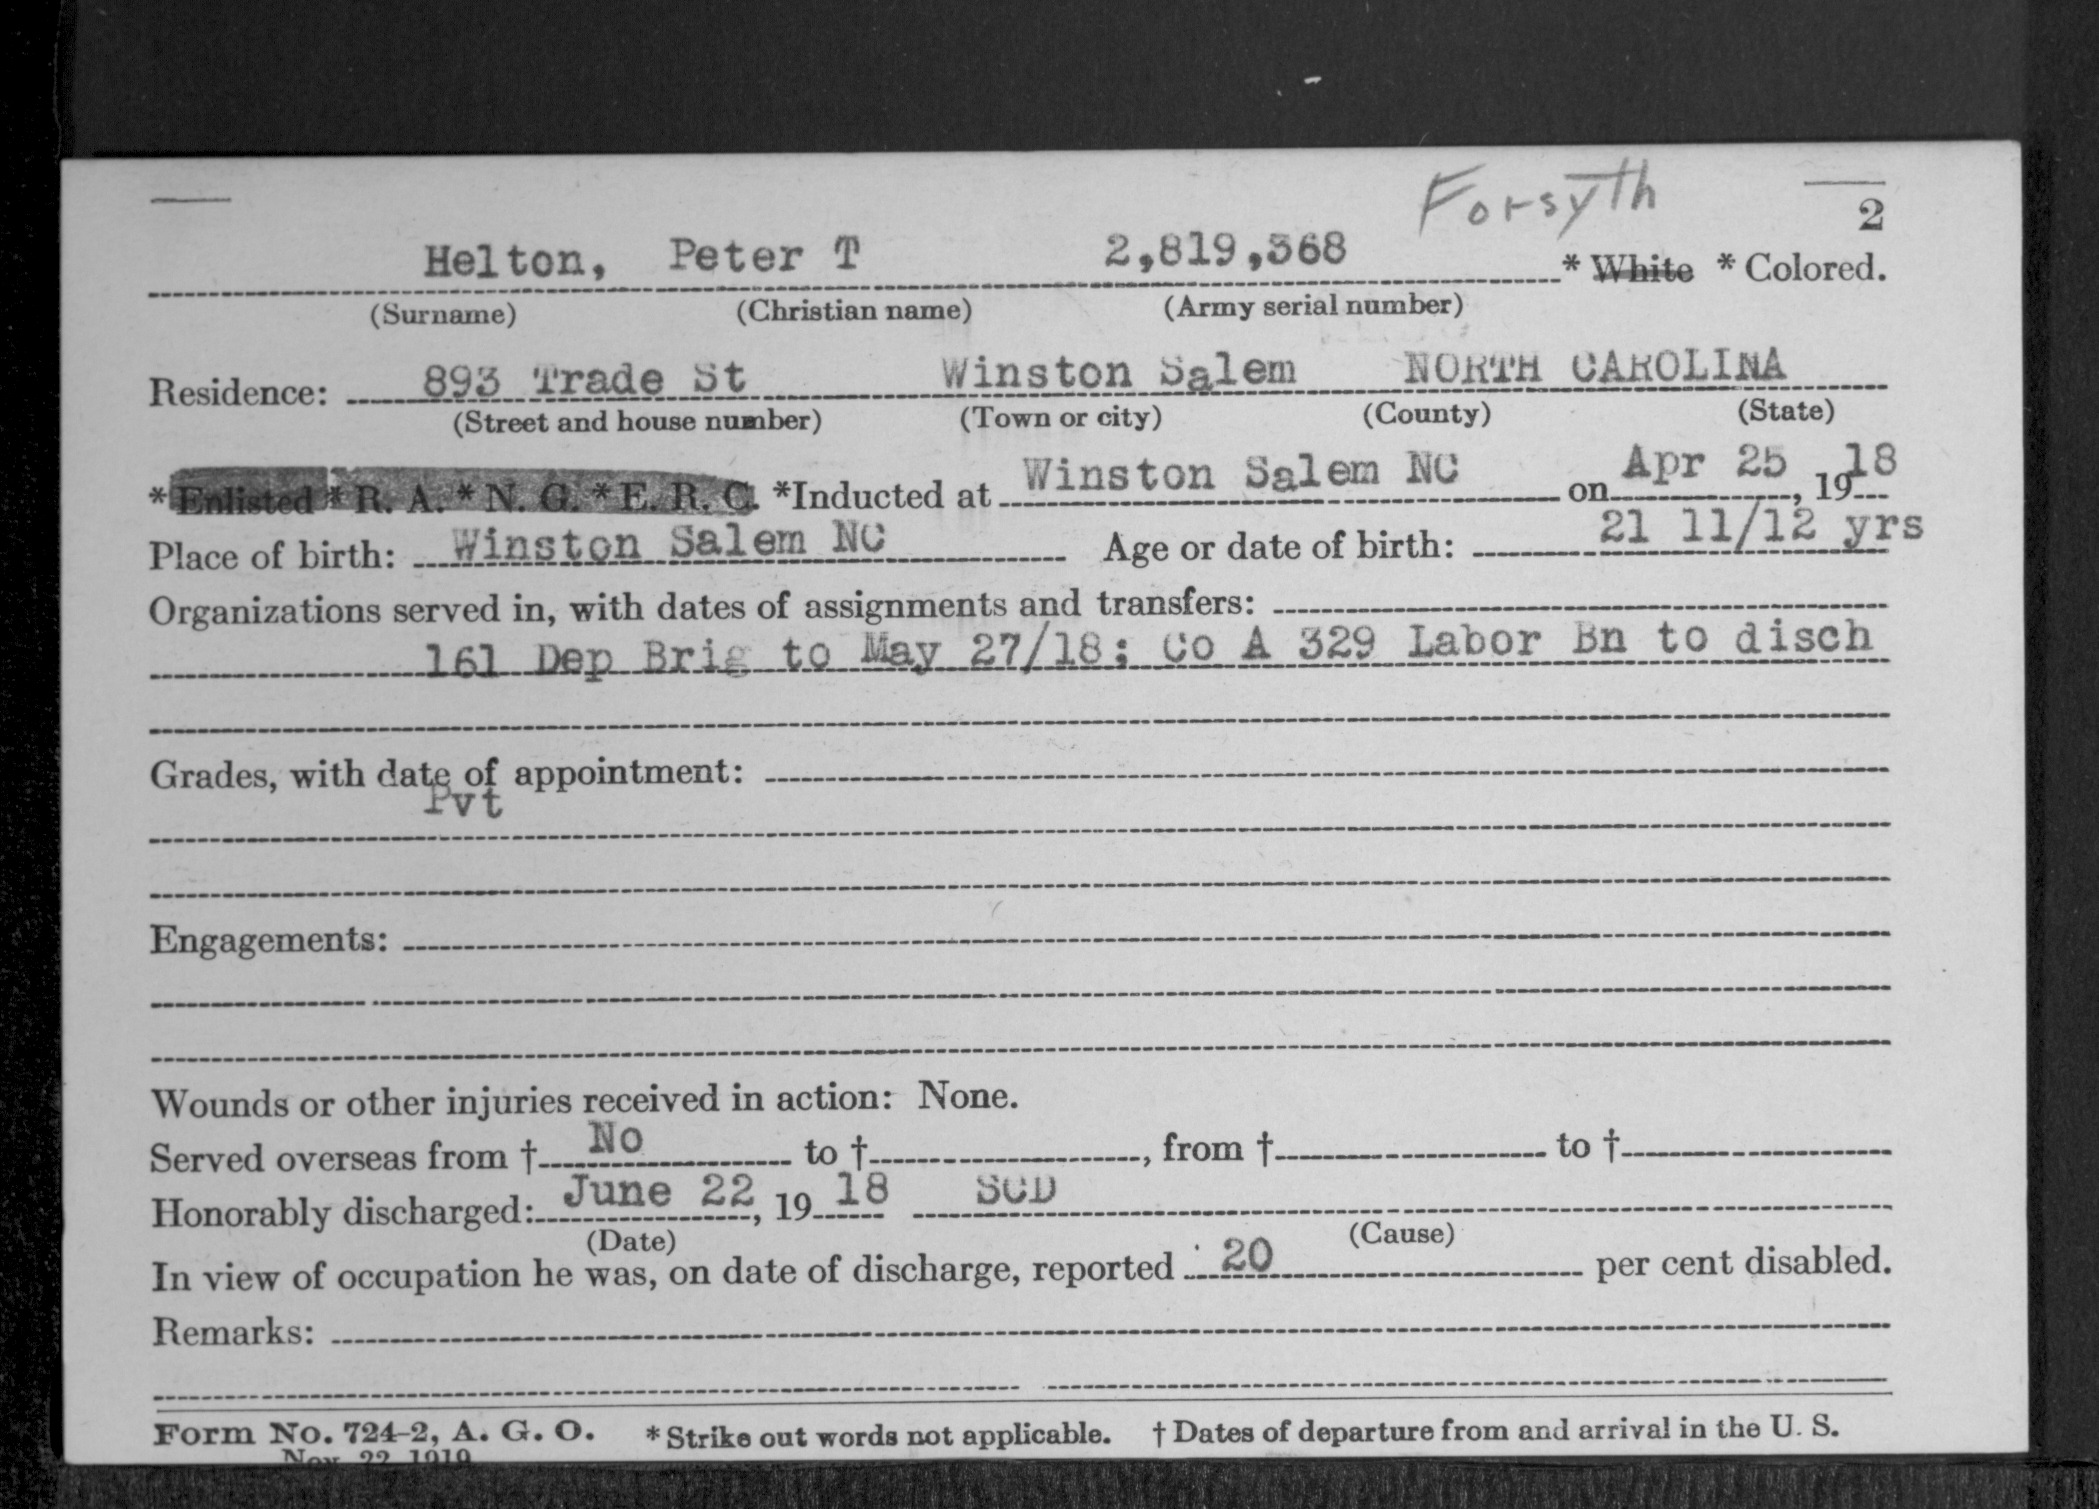 Forsyth
2
Helton, Peter T 2,819,368 * White * Colored.
(Surname) (Christian name) (Army serial number)
Residence: 893 Trade St Winston Salem NORTH CAROLINA
(Street and house number) (Town or city) (County) (State)
* Enlisted * R. A. * N. G. * E. R. C. *Inducted at Winston Salem NC on Apr 25, 1918
Place of birth: Winston Salem NC Age or date of birth: 21 11/12 yrs
Organizations served in, with dates of assignments and transfers:
161 Dep Brig to May 27/18; Co A 329 Labor Bn to disch
Grades, with date of appointment:
Pvt
Engagements:
Wounds or other injuries received in action: None.
Served overseas from † No to †, from † to †
Honorably discharged: June 22, 1918 SCD
(Date) (Cause)
In view of occupation he was, on date of discharge, reported 20 per cent disabled.
Remarks:
Form No. 724-2, A. G. O. * Strike out words not applicable. † Dates of departure from and arrival in the U. S.
Nov. 22, 1919